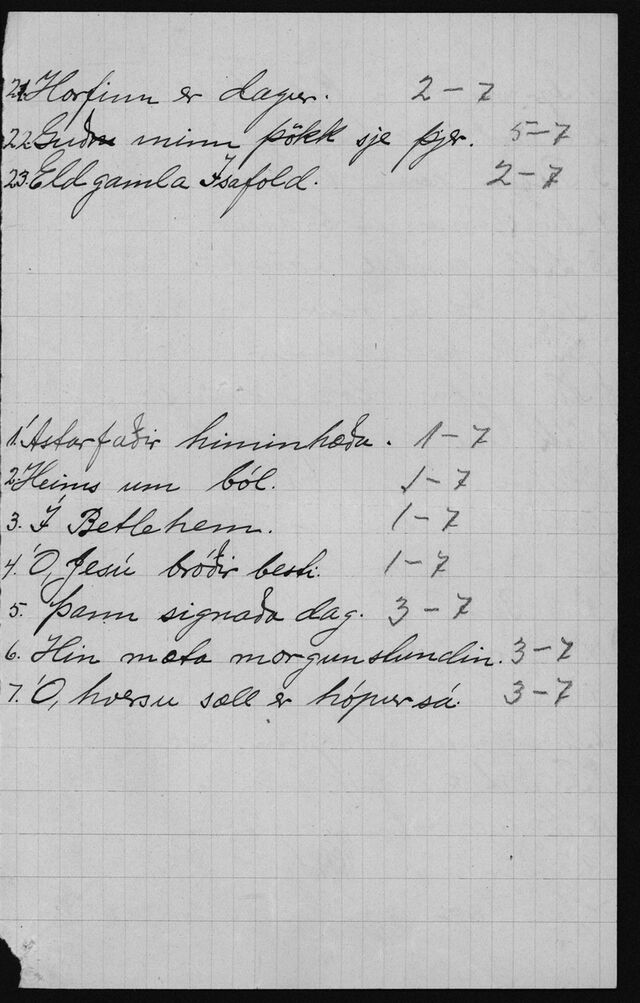 21. Horfinn er dagur. 2-7
22. Guð minn þökk sje þjer. 5-7
23. Eldgamla Ísafold. 2-7
1. Ástarfaðir himinhæða. 1-7
2. Heims um ból. 1-7
3. Í Betlehem. 1-7
4. Ó, Jesú bróðir besti. 1-7
5. Þann signaða dag. 3-7
6. Hin mæta morgunstundin. 3-7
7. Ó, hversu sæll er hópur sá. 3-7